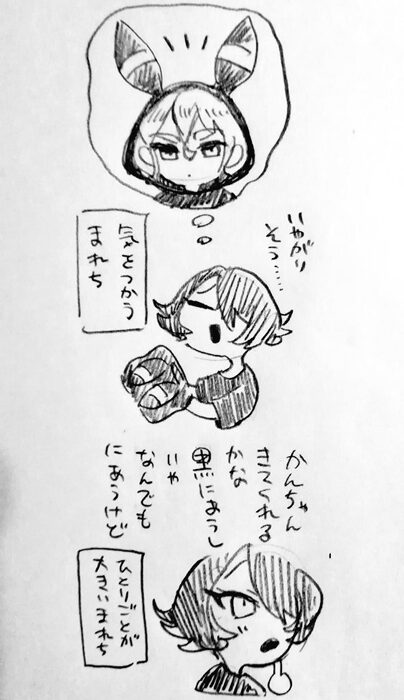 いやがり
そう……
気をつかう
まれち
かんちゃん
きてくれる
かな
黒にあうし
いや
なんでも
にあうけど
ひとりごとが
大きいまれち